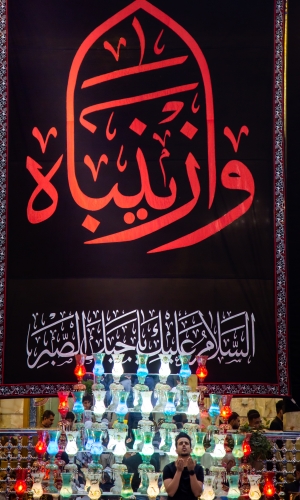 وا زينباه
السلام عليك يا جبل الصبر